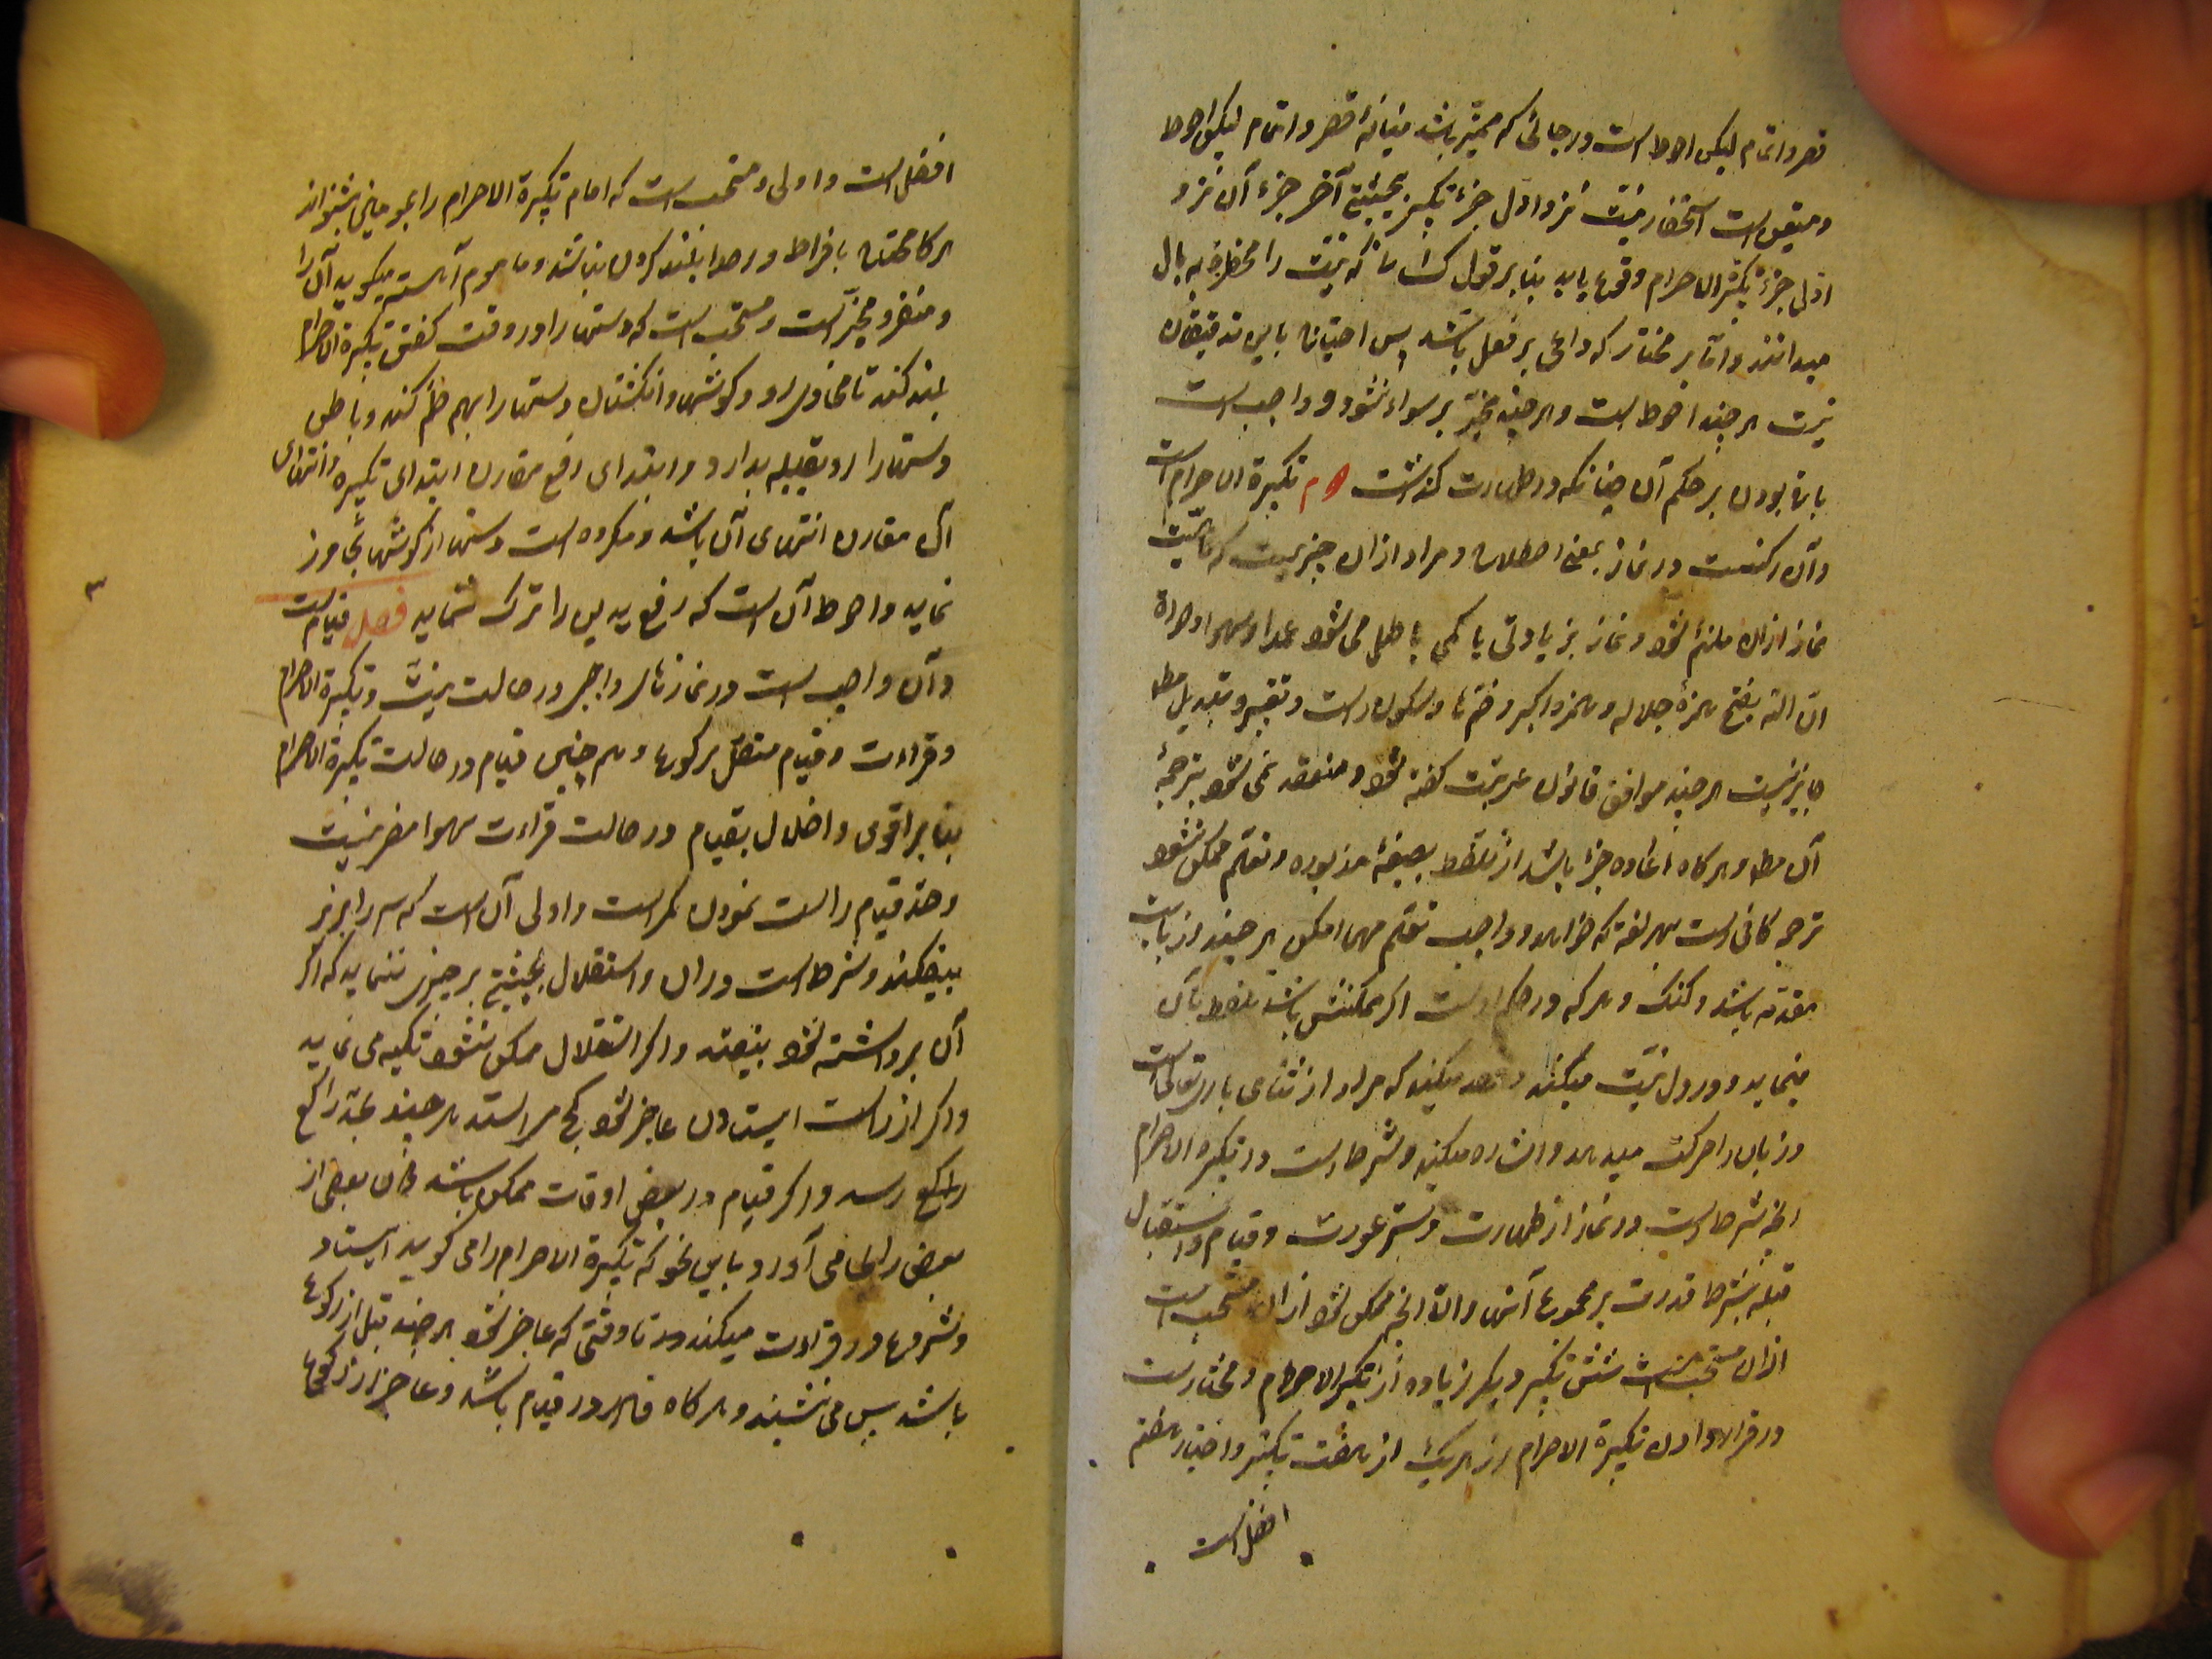 قصر و اتمام لیکن احوط است در جائی که مخیر باشد میانهٔ قصر و اتمام لیکن احوط
و متیقن است استحضار نیت نزد اول جزء تکبیر بحیثیتی آخر جزء آن نزد
اول جزء تکبیرة الاحرام وقوع یابد بنا بر قول کسانی که نیت را مخطره به بال
میدانند و اما بر مختار که داعی بر فعل باشد پس احتیاج باین تدقیقات
نیست هر چند احوط است و هر چند بر سواء نشود و واجب است
باقی بودن بر حکم آن چنانکه در طهارت گذشت دوم تکبیرة الاحرام است
و آن رکنست در نماز بمعنی اصطلاح و مراد از آن چیزیست که ماهیت
نماز از آن ملتئم شود و نماز بزیادتی یا کمی باطل می شود عمدا و سهوا و صورة
آن الله بفتح همزهٔ جلاله و همزه اکبر و ضم ها و سکون راست و تغییر و تبدیل مطلقا
جایز نیست هر چند موافق قانون عربیت گفته شود و منعقد نمی شود بترجمهٔ
آن مطلقا و هر گاه عاجز باشد از تلفظ بصیغهٔ مذبوره و تعلم ممکن نشود
ترجمه کافی است بهر لغة که خواهد و واجب تعلم مهما امکن هر چند از باب
مقدمه باشد و گنگ و هر که در حکم اوست اگر ممکنش باشد تلفظ بآن
مینماید و در دل نیت میکند و قصد میکند که مراد از ثنای باری تعالی است
و زبان را حرکت میدهد و اشاره میکند و شرط است در تکبیرة الاحرام
آنچه شرط است در نماز از طهارت و ستر عورت و قیام و استقبال
قبله بشرط قدرت بر مجموع آنها و الا آنچه ممکن شود از آن مستحب است
از آن مستحب است شش تکبیر دیگر زیاده از تکبیر الاحرام و مختار است
در قرار دادن تکبیرة الاحرام از هر یک از هفت تکبیر و اختیار هفتم
افضل است
افضل است و اولی و مستحب است که امام تکبیرة الاحرام را بمومنین بشنواند
هرگاه محتاج بافراط در صدا بلند کردن نباشد و ماموم آهسته میگوید آن را
و منفرد مخیر است و مستحب است که دستها را در وقت گفتن تکبیرة الاحرام
بلند کند تا محاذی رو و گوشها و انگشتان دستها را بهم ضم کند و باطن
دستها را رو بقبله بدارد و ابتدای رفع مقارن ابتدای تکبیره و انتهای
آن مقارن انتهای آن باشد و مکروه است دستها از گوشها تجاوز
نماید و احوط آن است که رفع یدین را ترک ننماید فصل قیام است
و آن واجب است در نمازهای واجبی در حالت نیت و تکبیرة الاحرام
و قراءت و قیام متصل برکوع و هم چنین قیام در حالت تکبیرة الاحرام
بنا بر اقوی و اخلال بقیام در حالت قراءت سهوا مضر نیست
و حد قیام راست نمودن کمر است و اولی آن است که سر را بزیر
نیفکند و شرط است در آن و استقلال بحیثیتی بر چیزی ننماید که اگر
آن برداشته شود بیفتد و اگر استقلال ممکن نشود تکیه می نماید
و اگر از راست ایستادن عاجز شود کج می ایستد هر چند بحد راکع
راکع رسد و اگر قیام در بعض اوقات ممکن باشد دون بعضی از
بعض را بجا می آورد باین نحو که تکبیرة الاحرام را می گوید ایستاد
و شروع در قراءت میکند تا وقتی که عاجز شود هر چند قبل از رکوع
باشد پس می نشیند و هر گاه قادر در قیام باشد و عاجز از رکوع